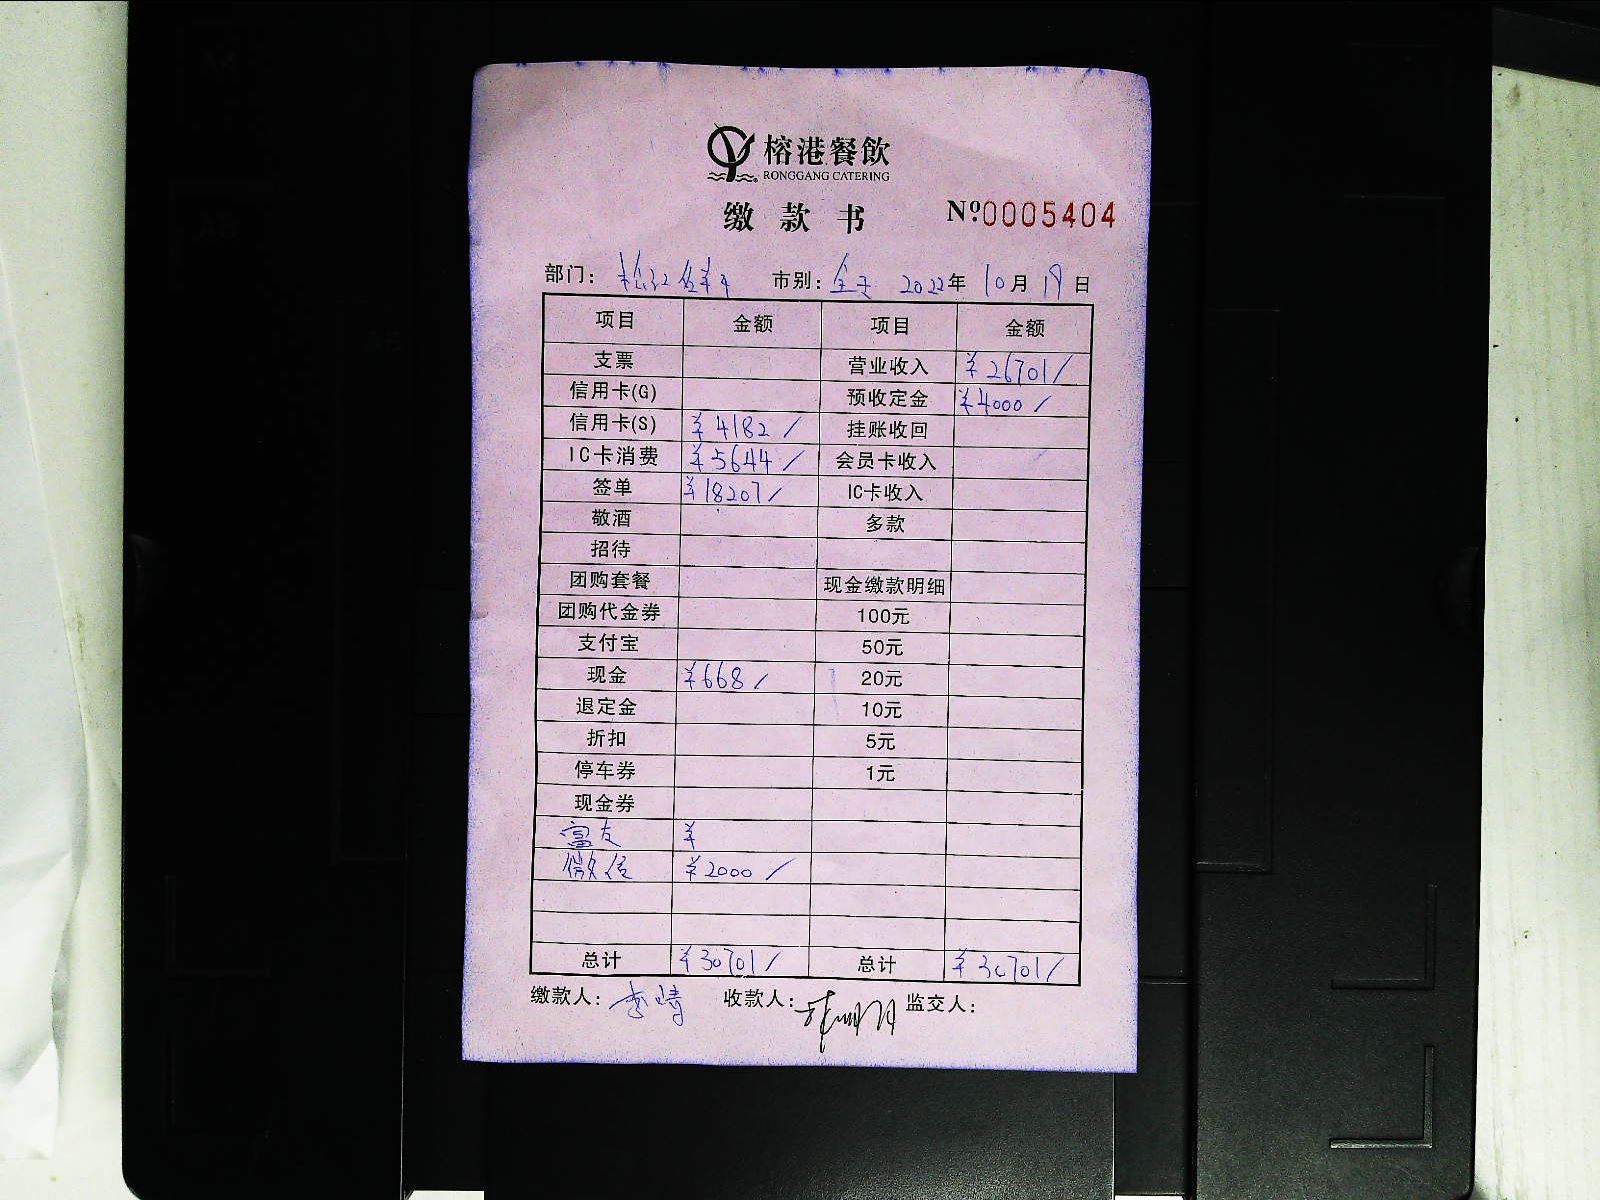 榕港餐飲
RONGGANG CATERING
缴款书 Nº.0005404
部门： 市别：全天 2022年 10月 19日
项目 金额 项目 金额
支票 营业收入 ¥26701/
信用卡(G) 预收定金 ¥4000/
信用卡(S) ¥4182/ 挂账收回
IC卡消费 ¥5644/ 会员卡收入
签单 ¥18207/ IC卡收入
敬酒 多款
招待
团购套餐 现金缴款明细
团购代金券 100元
支付宝 50元
现金 ¥668/ 20元
退定金 10元
折扣 5元
停车券 1元
现金券
富友 ¥
微信 ¥2000/
总计 ¥30701/ 总计 ¥30701/
缴款人：李晴 收款人： 监交人：